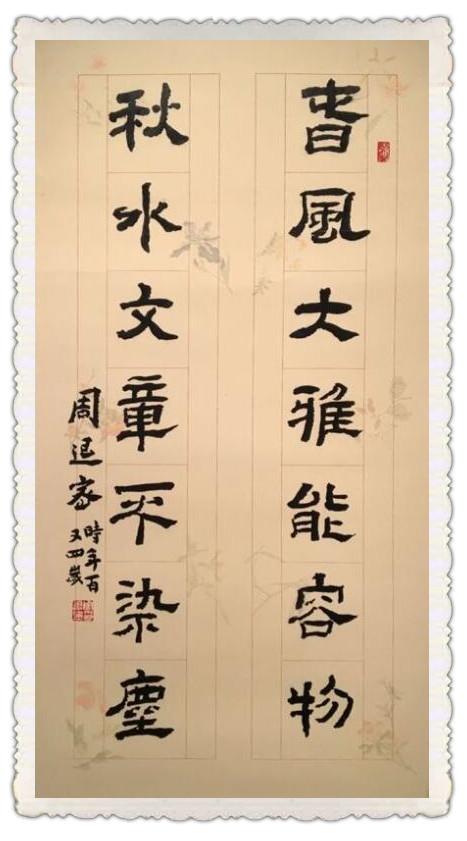 旾風大雅能容物
秋水文章不染塵
周退密
時年百
又四歲